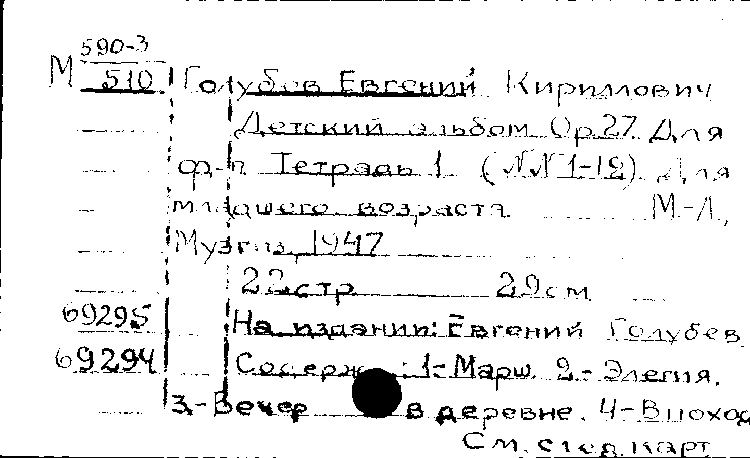 590-3
М 510 Голубев Евгений Кириллович
Детский альбом Ор.27 Для
ф-п Тетрадь 1 (NN 1-12) Для
младшего возраста М-Л.,
Музгиз, 1947
22стр. 29см
69295 На издании: Евгений Голубев
69294 Содерж.: 1-Марш. 2.-Элегия.
3.-Вечер в деревне. 4-В поход
См. след. карт.